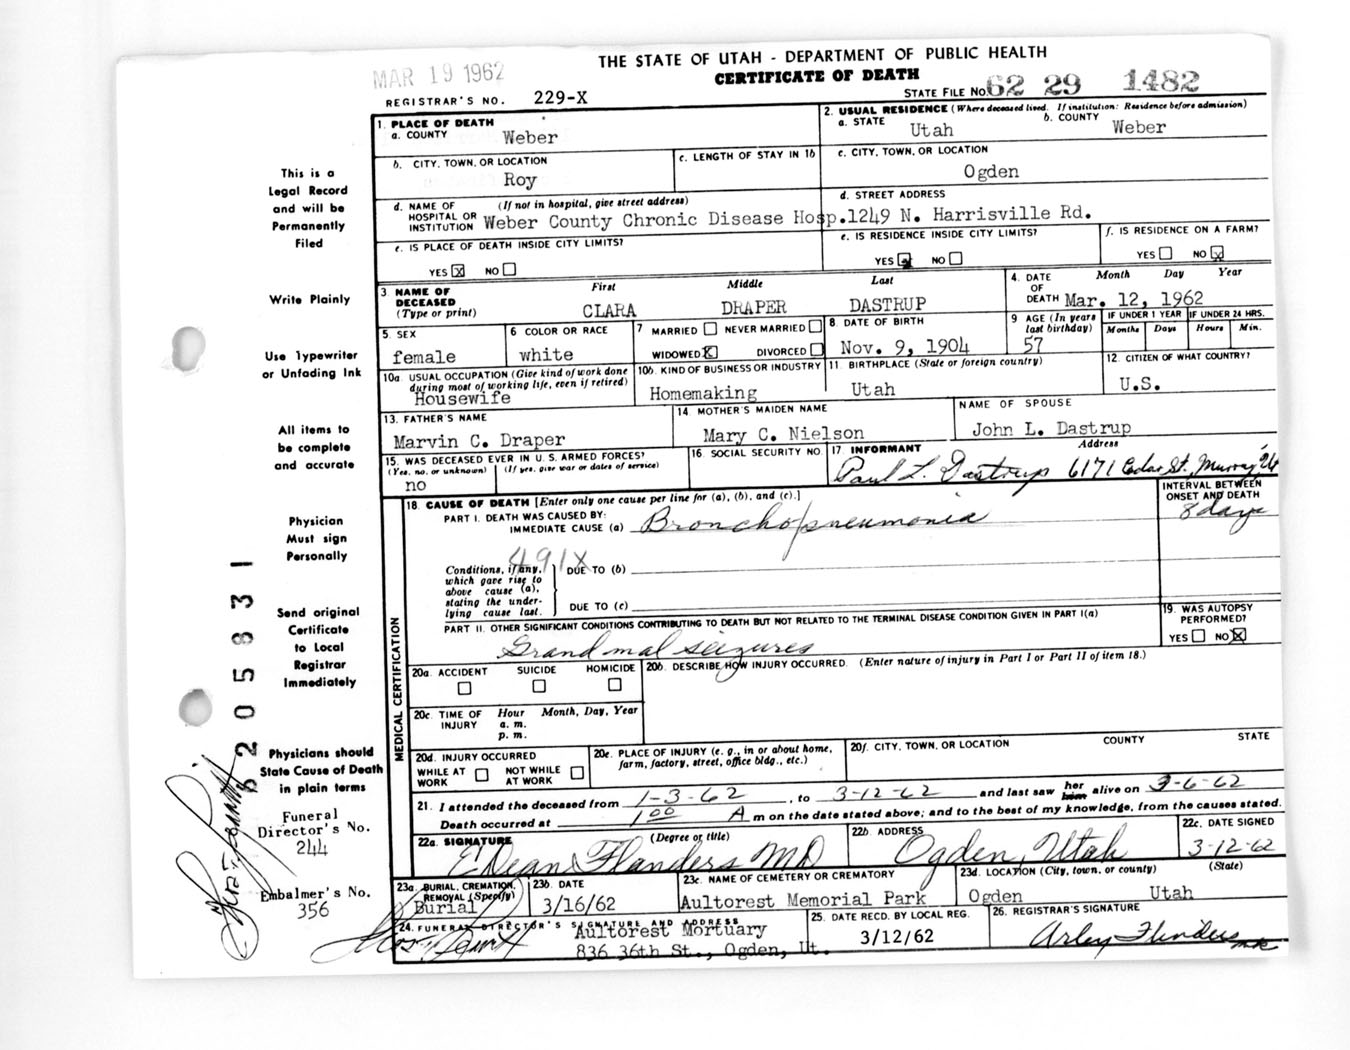 THE STATE OF UTAH - DEPARTMENT OF PUBLIC HEALTH
MAR 19 1962
CERTIFICATE OF DEATH
STATE FILE NO. 62 29 1482
REGISTRAR'S NO. 229-X
1. PLACE OF DEATH
a. COUNTY Weber
2. USUAL RESIDENCE (Where deceased lived. If institution: Residence before admission)
a. STATE Utah b. COUNTY Weber
b. CITY, TOWN, OR LOCATION Roy
c. LENGTH OF STAY IN 1b
c. CITY, TOWN, OR LOCATION Ogden
d. NAME OF HOSPITAL OR INSTITUTION (If not in hospital, give street address) Weber County Chronic Disease Hosp.
d. STREET ADDRESS 1249 N. Harrisville Rd.
e. IS PLACE OF DEATH INSIDE CITY LIMITS?
YES X NO
e. IS RESIDENCE INSIDE CITY LIMITS?
YES NO
f. IS RESIDENCE ON A FARM?
YES NO X
3. NAME OF DECEASED (Type or print)
First Middle Last
CLARA DRAPER DASTRUP
4. DATE OF DEATH Month Day Year
Mar. 12, 1962
5. SEX female
6 COLOR OR RACE white
7 MARRIED NEVER MARRIED
WIDOWED X DIVORCED
8. DATE OF BIRTH Nov. 9, 1904
9 AGE (In years last birthday) 57
IF UNDER 1 YEAR Months Days
IF UNDER 24 HRS. Hours Min.
10a. USUAL OCCUPATION (Give kind of work done during most of working life, even if retired) Housewife
10b. KIND OF BUSINESS OR INDUSTRY Homemaking
11. BIRTHPLACE (State or foreign country) Utah
12. CITIZEN OF WHAT COUNTRY? U.S.
13. FATHER'S NAME Marvin C. Draper
14. MOTHER'S MAIDEN NAME Mary C. Nielson
NAME OF SPOUSE John L. Dastrup
15. WAS DECEASED EVER IN U.S. ARMED FORCES?
(Yes, no, or unknown) (If yes, give war or dates of service)
no
16. SOCIAL SECURITY NO.
17. INFORMANT Address
Paul L. Dastrup 6171 Cedar St. Murray, Ut
18. CAUSE OF DEATH [Enter only one cause per line for (a), (b), and (c).]
INTERVAL BETWEEN ONSET AND DEATH
PART I. DEATH WAS CAUSED BY:
IMMEDIATE CAUSE (a) Bronchopneumonia 8 days
491X
Conditions, if any, which gave rise to above cause (a), stating the underlying cause last.
DUE TO (b)
DUE TO (c)
PART II. OTHER SIGNIFICANT CONDITIONS CONTRIBUTING TO DEATH BUT NOT RELATED TO THE TERMINAL DISEASE CONDITION GIVEN IN PART I(a)
Grand mal seizures
19. WAS AUTOPSY PERFORMED?
YES NO X
MEDICAL CERTIFICATION
20a. ACCIDENT SUICIDE HOMICIDE
20b. DESCRIBE HOW INJURY OCCURRED. (Enter nature of injury in Part I or Part II of item 18.)
20c. TIME OF INJURY Hour a. m. p. m. Month, Day, Year
20d. INJURY OCCURRED
WHILE AT WORK NOT WHILE AT WORK
20e. PLACE OF INJURY (e. g., in or about home, farm, factory, street, office bldg., etc.)
20f. CITY, TOWN, OR LOCATION COUNTY STATE
21. I attended the deceased from 1-3-62, to 3-12-62 and last saw her him alive on 3-6-62
Death occurred at 1:00 A m on the date stated above; and to the best of my knowledge, from the causes stated.
22a. SIGNATURE (Degree or title) E Dean Flanders MD
22b. ADDRESS Ogden, Utah
22c. DATE SIGNED 3-12-62
23a. BURIAL, CREMATION, REMOVAL (Specify) Burial
23b. DATE 3/16/62
23c. NAME OF CEMETERY OR CREMATORY Aultorest Memorial Park
23d. LOCATION (City, town, or county) (State)
Ogden Utah
24. FUNERAL DIRECTOR'S SIGNATURE AND ADDRESS
Aultorest Mortuary
836 36th St., Ogden, Ut.
25. DATE RECD. BY LOCAL REG. 3/12/62
26. REGISTRAR'S SIGNATURE
This is a
Legal Record
and will be
Permanently
Filed
Write Plainly
Use Typewriter
or Unfading Ink
All items to
be complete
and accurate
Physician
Must sign
Personally
Send original
Certificate
to Local
Registrar
Immediately
Physicians should
State Cause of Death
in plain terms
Funeral
Director's No.
244
Embalmer's No.
356
6205831